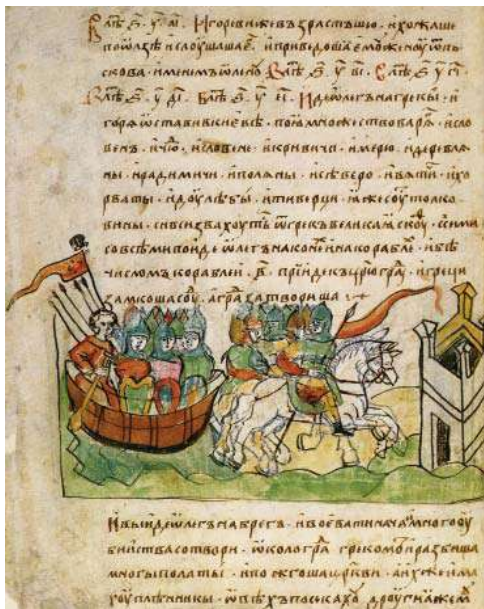 В лѣⷮ ҂ѕ҃ · у҃ · аі҃ · Игореви же възрастъшю · и хожаше
по ѡлзѣ и слоушаше е҃ · и приведоша емоу женоу ѿ пь
скова · именемъ ѡлено · В лѣⷮ ҂ѕ҃ · у҃ · ві҃ · В лѣⷮ ҂ѕ҃ · у҃ · гі҃
В лѣⷮ ҂ѕ҃ · у҃ · ді҃ · В лѣⷮ ҂ѕ҃ · у҃ · еі҃ · Иде ѡлегъ на грекы · и
горя ѡставив киевѣ · поя множество варяⷢ · и сло
венъ · и чюⷣ · и словене · и кривичи · и мерю · и деревля
ны · и радимичи · и поляны · и сѣверо · и вятичи · и хо
рваты · и доулѣбы · и тиверци · яже соуⷮ толко
вины · си вси звахоуть ѿ грекъ великая скоуⷴ · с сими
со всѣми поиде ѡлегъ на конеⷯ и на корабле · и бѣ
числомъ кораблеи · в҃ · прииде къ црю граⷣ · и греци
замкоша соуⷣ · а граⷣ затвориша
И выиде ѡлегъ на брегъ · и воевати нача · и много оу
бииства сотвори · ѡколо граⷣ грекомъ · и разбиша
многы полаты · и пожгоша цр҃кви · а ихже има
хоу плѣнникы · ѡвѣхъ посекахоу · дроугиа же м